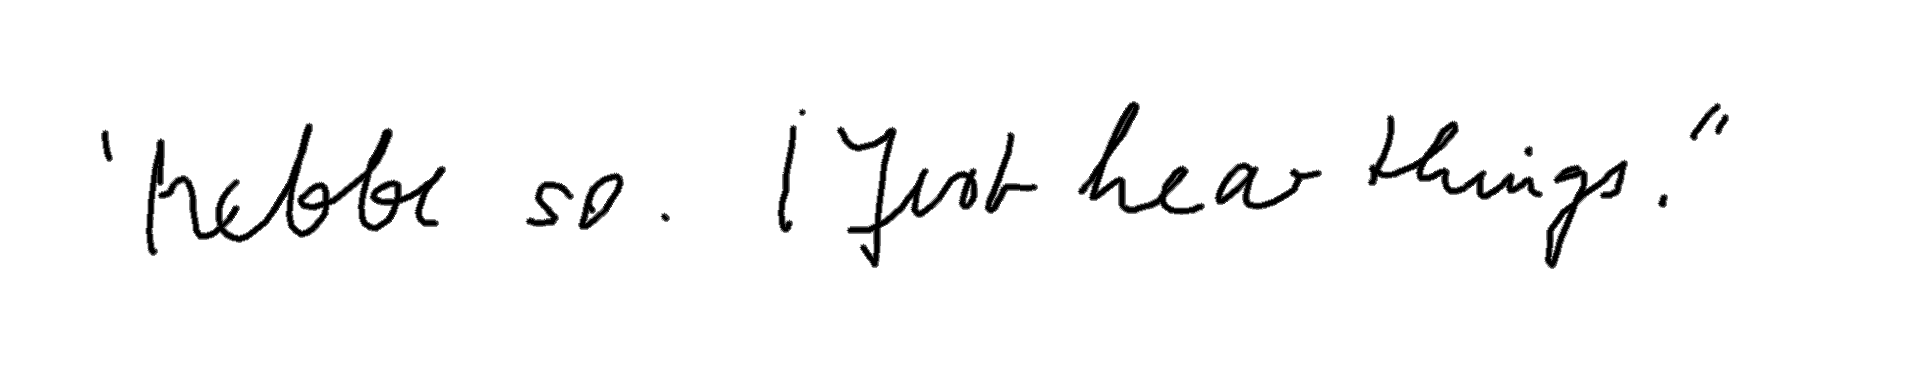 "Mebbe so. I just hear things."